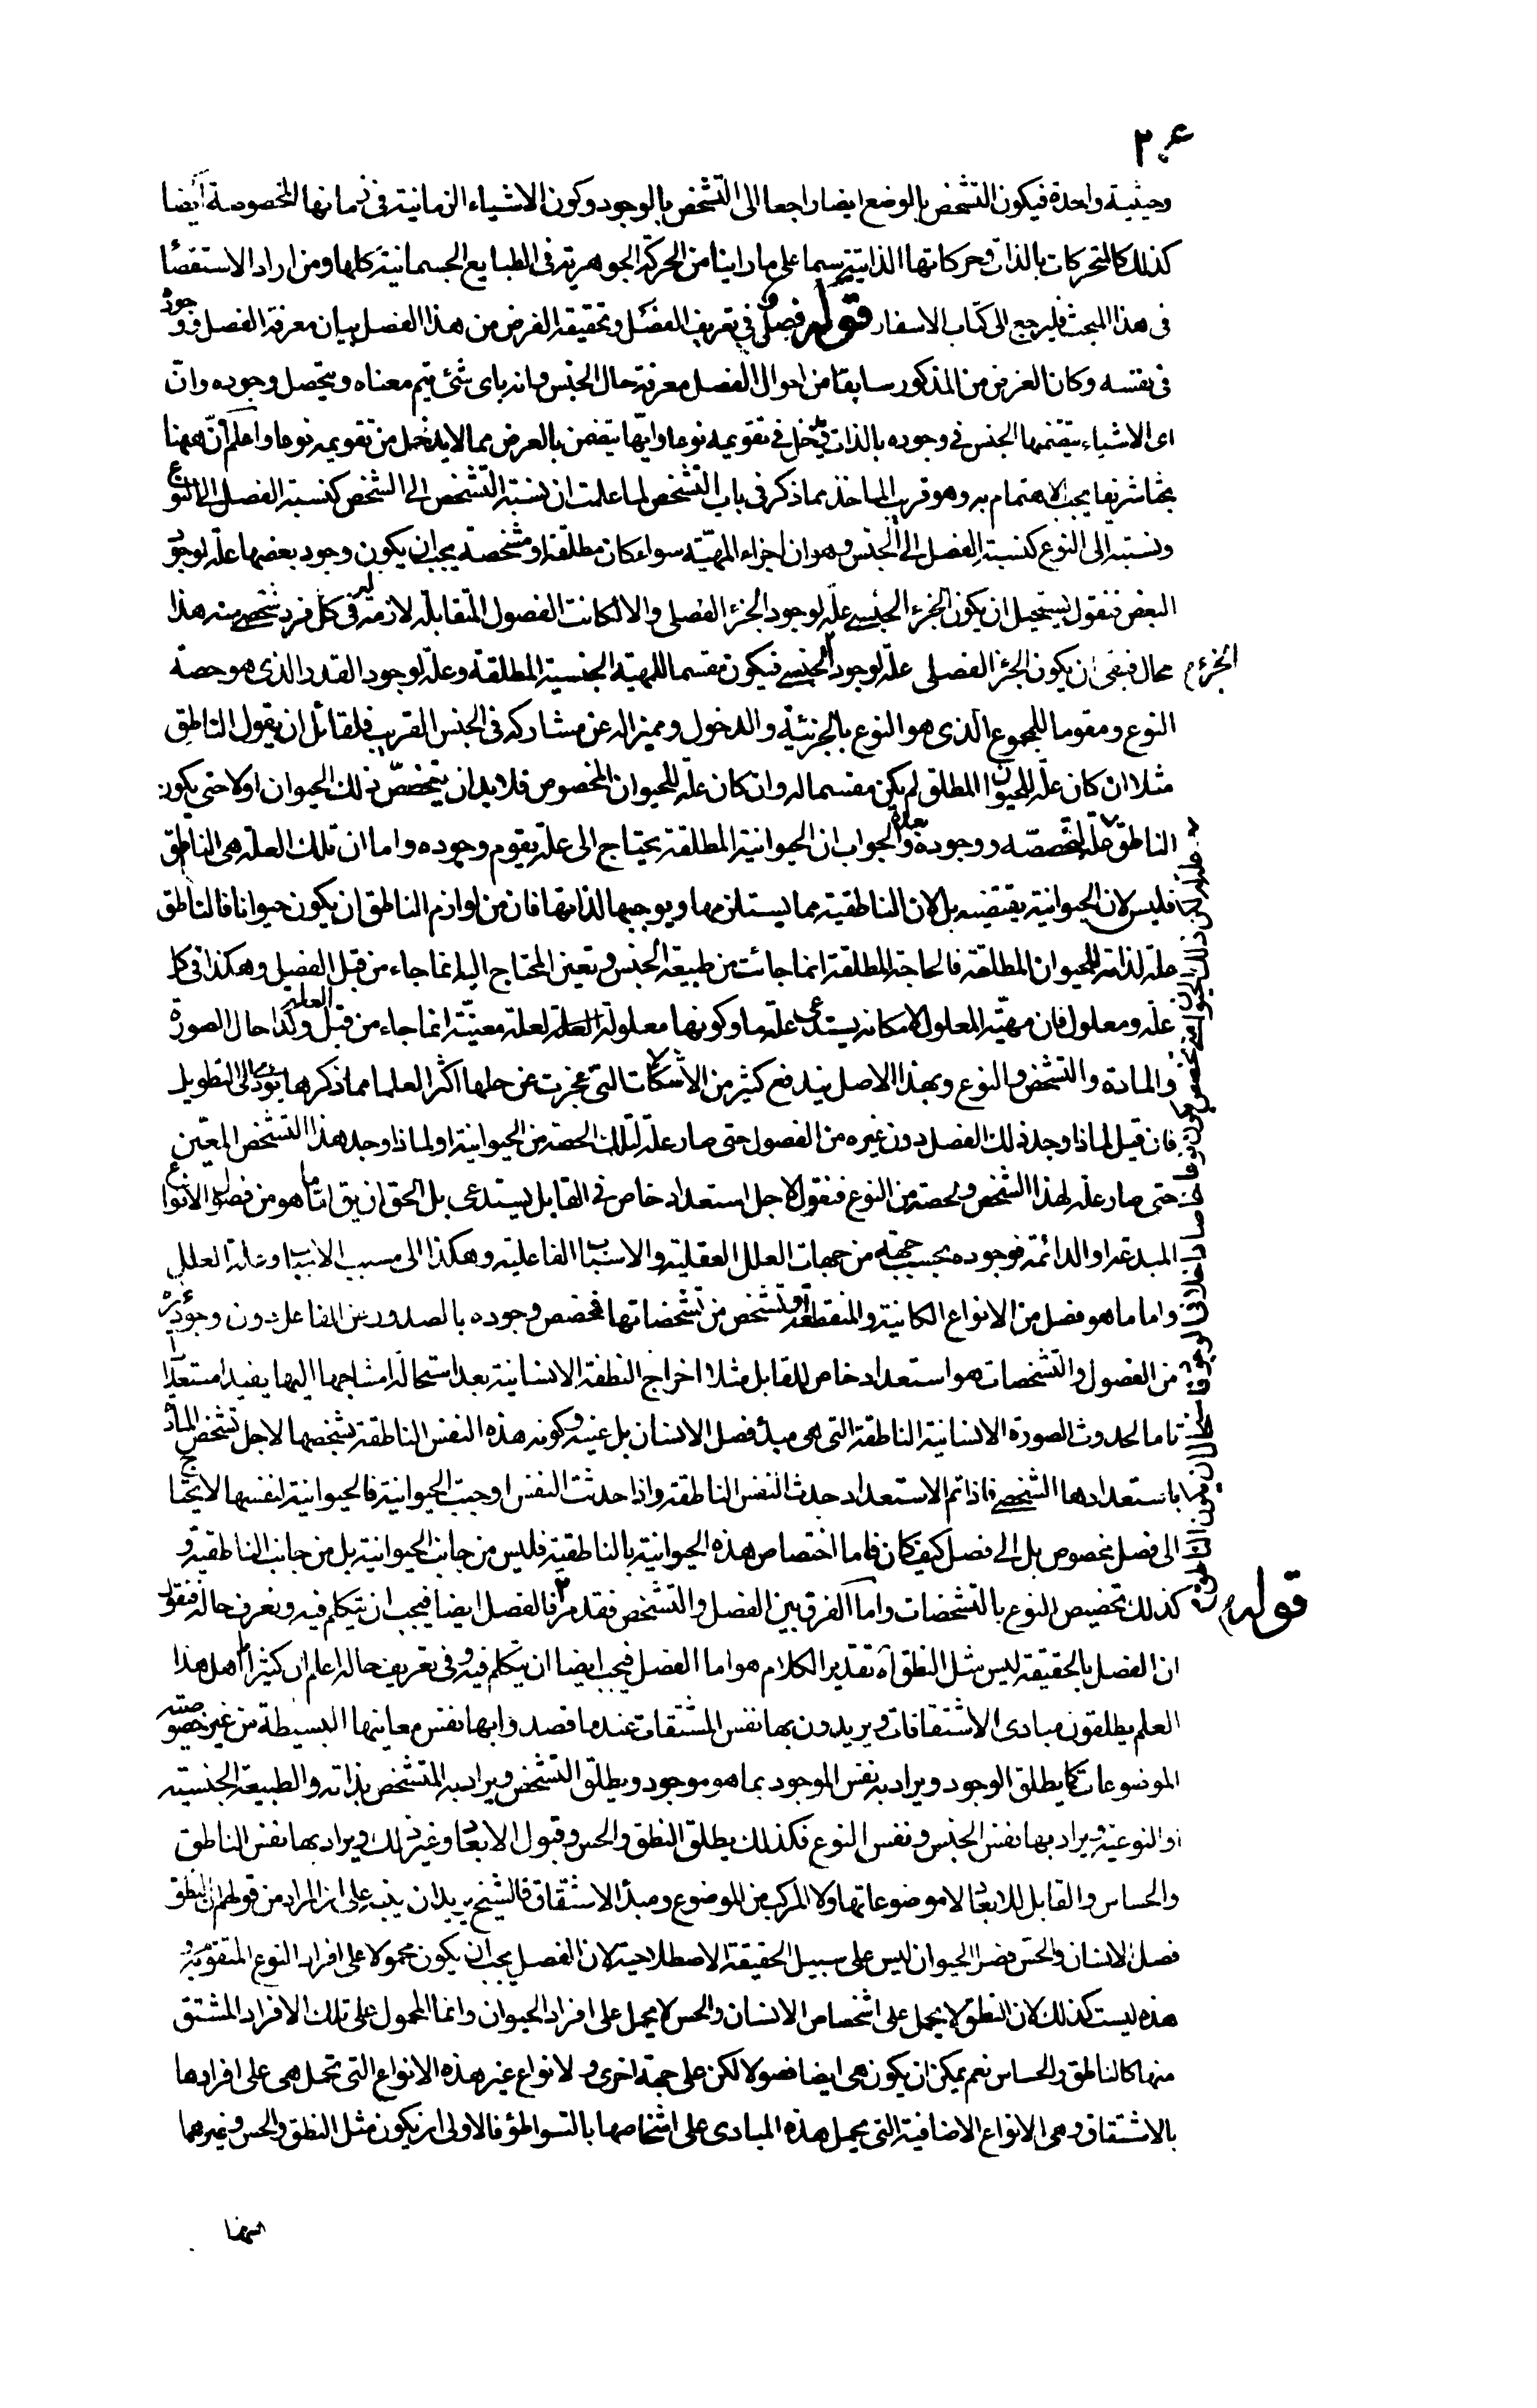 ٢٠٤
وحيثية واحدة فيكون التشخص بالوضع ايضا راجعا الى التشخص بالوجود وكون الاشياء الزمانية فى زمانها المخصوصة ايضا
كذلك كالمتحركات بالذات وحركاتها الذاتية سيما على ما راينا من الحركة الجوهرية فى الطبايع الجسمانية كلها ومن اراد الاستقصا
فى هذا المبحث فليرجع الى كتاب الاسفار قوله فصل فى تعريف الفصل وتحقيقه الغرض من هذا الفصل بيان معرفة الفصل فى وجوده
فى نفسه وكان الغرض من المذكور سابقا من احوال الفصل معرفة حال الجنس وانه باى شئ يتم معناه ويتحصل وجوده وان
اى الاشياء يتضمنها الجنس فى وجوده بالذات فيدخل فى تقويمه نوعا وايها يتضمن بالعرض مما لا يدخل من تقويمه نوعا واعلم ان ههنا
بحثا شريفا يجب الاهتمام به وهو قريب الماخذ مما ذكر فى باب التشخص لما علمت ان نسبة التشخص الى الشخص كنسبة الفصل الى النوع
ونسبته الى النوع كنسبة الفصل الى الجنس وهو ان اجزاء المهية سواء كان مطلقة او مشخصة يجب ان يكون وجود بعضها علة لوجود
البعض فنقول يستحيل ان يكون الجزء الجنسى علة لوجود الجزء الفصلى والا لكانت الفصول المتقابلة لازمة له فى كل فرد شخصى منه هذا
محال فبقى ان يكون الجزء الفصلى علة لوجود الجزء الجنسى فيكون مقسما للمهية الجنسية المطلقة وعلة لوجود القدر الذى هو حصة
النوع ومقوما للمجموع الذى هو النوع بالجزئية والدخول ومميزا له عن مشاركه فى الجنس القريب فلقائل ان يقول الناطق
مثلا ان كان علة للحيوان المطلق لم يكن مقسما له وان كان علة للحيوان المخصوص فلا بد ان يتخصص ذلك الحيوان اولا حتى يكون
الناطق علة لتخصصه ووجوده والجواب ان الحيوانية المطلقة يحتاج الى علة يقوم وجوده واما ان تلك العلة هى الناطق
فليس لان الحيوانية يقتضيه بل لان الناطقية مما يستلزمها ويوجبها لذاتها فان من لوازم الناطق ان يكون حيوانا فالناطق
علة لذاته للحيوان المطلقة فالحاجة المطلقة انما جائت من طبيعة الجنس وتعين المحتاج اليه انما جاء من قبل الفصل وهكذا فى كل
علة ومعلول فان مهية المعلول لامكانه يستدعى علة ما وكونها معلولة لعلة معينة انما جاء من قبل العلة وكذا حال الصورة
والمادة والتشخص والنوع وبهذا الاصل يندفع كثير من الاشكالات التى عجزت عن حلها اكثر العلما مما ذكرها يؤدى الى التطويل
فان قيل لماذا وجد ذلك الفصل دون غيره من الفصول حتى صار علة لتلك الحصة من الحيوانية او لماذا وجد هذا التشخص المعين
حتى صار علة لهذا الشخص ولحصته من النوع فنقول لاجل استعداد خاص فى القابل يستدعى بل الحق ان يق اما ما هو من فصول الانواع
المبدعة او الدائمة فوجوده بحسب جهة من جهات العلل العقلية والاسباب الفاعلية وهكذا الى مسبب الاسباب وعلة العلل
واما ما هو فصل من الانواع الكاينة والمنقطعة او تشخص من تشخصاتها فمخصص وجوده بالصدور من الفاعل دون وجود غيره
من الفصول والتشخصات هو استعداد خاص للقابل مثلا اخراج النطفة الانسانية بعد استحالة امشاجها اليها يفيد استعدادا
تاما لحدوث الصورة الانسانية الناطقة التى هى مبدأ فصل الانسان بل عينه وكونه هذه النفس الناطقة بشخصها لاجل تشخص المادة
باستعدادها الشخصى فاذا تم الاستعداد حدث النفس الناطقة واذا حدثت النفس اوجبت الحيوانية فالحيوانية لنفسها لا يحتاج
الى فصل مخصوص بل الى فصل كيف كان فاما اختصاص هذه الحيوانية بالناطقية فليس من جانب الحيوانية بل من جانب الناطقية و
كذلك تخصيص النوع بالتشخصات واما الفرق بين الفصل والتشخص فقد مر قوله فالفصل ايضا فيجب ان يتكلم فيه ونعرف حاله فنقول
ان الفصل بالحقيقة ليس مثل النطق آه تقدير الكلام هو اما الفصل فيجب ايضا ان يتكلم فيه وفى تعريف حاله اعلم ان كثيرا ما اهل هذا
العلم يطلقون مبادى الاشتقاقات ويريدون بها نفس المشتقات عندما قصدوا بها نفس معانيها البسيطة من غير خصوصية
الموضوعات كما يطلق الوجود ويراد به نفس الموجود بما هو موجود ويطلق التشخص ويراد به المتشخص بذاته والطبيعة الجنسية
او النوعية ويراد بها نفس الجنس ونفس النوع فكذلك يطلق النطق والحس وقبول الابعاد وغير ذلك ويراد بها نفس الناطق
والحساس والقابل للابعاد لا موضوعاتها ولا المركب من الموضوع ومبدأ الاشتقاق فالشيخ يريد ان ينبه على ان المراد من قولهم ان النطق
فصل الانسان والحس فصل الحيوان ليس على سبيل الحقيقة الاصطلاحية لان الفصل يجب ان يكون محمولا على افراد النوع المتقوم به و
هذه ليست كذلك لان النطق لا يحمل على اشخاص الانسان والحس لا يحمل على افراد الحيوان وانما المحمول على تلك الافراد المشتق
منها كالناطق والحساس نعم يمكن ان يكون هى ايضا فصولا لكن على جهة اخرى و لانواع غير هذه الانواع التى تحمل هى على افرادها
بالاشتقاق وهى الانواع الاضافية التى يحمل هذه المبادى على اشخاصها بالتواطؤ فالاولى ان يكون مثل النطق والحس وغيرهما